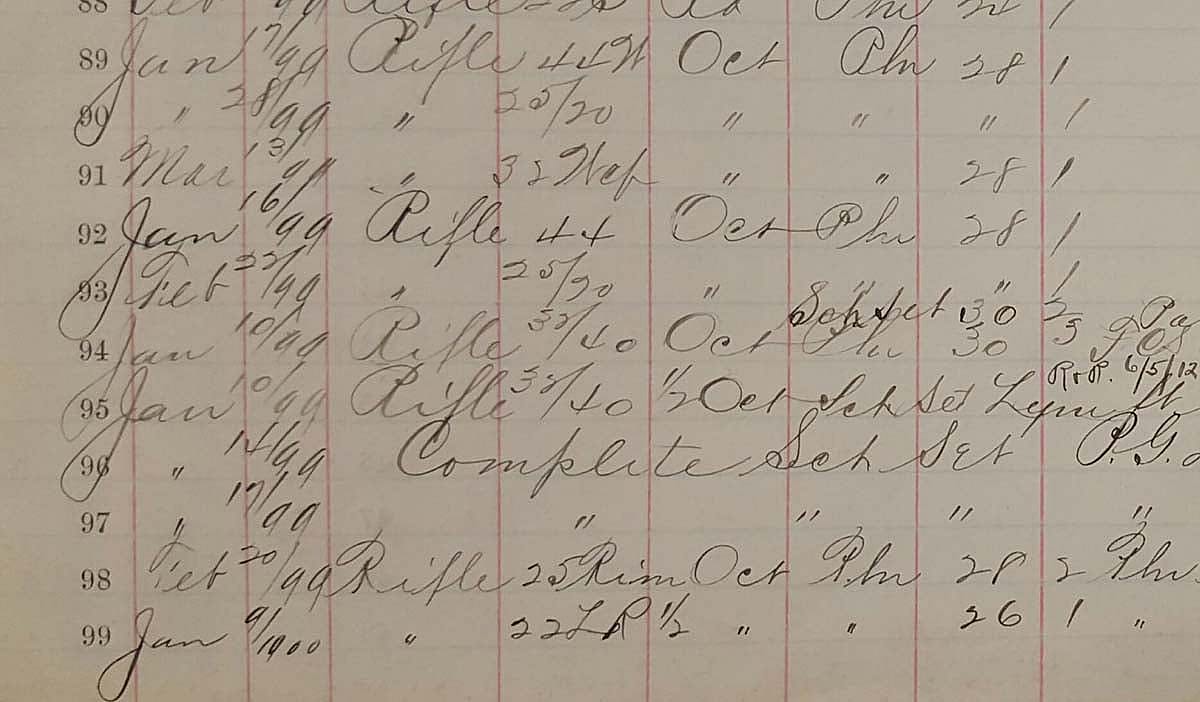 88 Feb /99 Rifle 22 Rd Pln 24 1
89 Jan 17/99 Rifle 44 W Oct Pln 28 1
90 " 28/99 " 25/20 " " " 1
91 Mar 13/99 " 32 Wcf " " 28 1
92 Jan 16/99 Rifle 44 Oct Pln 28 1
93 Feb 22/99 " 25/20 " " " 1
Sch Set 30 2 Pa
94 Jan 10/99 Rifle 32/40 Oct Pln 30 3
R & R. 6/5/12
95 Jan 10/99 Rifle 32/40 1/2 Oct Sch Set Lym
96 " 14/99 Complete Sch Set P.G.
97 " 17/99 " " " "
98 Feb 20/99 Rifle 25 Rim Oct Pln 28 2 Pln.
99 Jan 9/1900 " 22 L R 1/2 " " 26 1 "